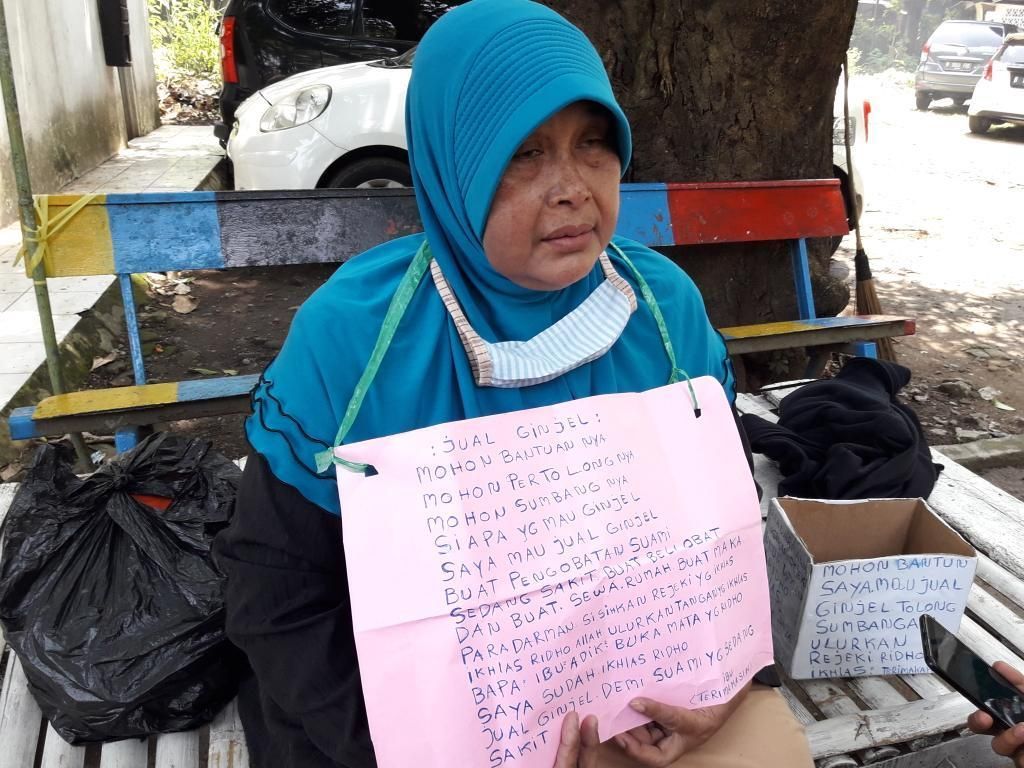 : JUAL GINJEL :
MOHON BANTUAN NYA
MOHON PERTOLONGNYA
MOHON SUMBANG NYA
SIAPA YG MAU GINJEL
SAYA MAU JUAL GINJEL
BUAT PENGOBATAN SUAMI
SEDANG SAKIT BUAT BELI OBAT
DAN BUAT. SEWA RUMAH BUAT MAKA
PARA DARMAN SISIHKAN REJEKI YG IKHLAS
IKHLAS RIDHO ALLAH ULURKAN TANGAN YG IKHLAS
BAPA² IBU² ADIK² BUKA MATA YG RIDHO
SAYA SUDAH IKHLAS RIDHO
JUAL GINJEL. DEMI SUAMI YG SEDANG
SAKIT (TERIMAKASIH) IBU
MOHON BANTUN
SAYA MAU JUAL
GINJEL TOLONG
SUMBANGA
ULURKAN
REJEKI RIDHO
IKHLAS TRIMAKA